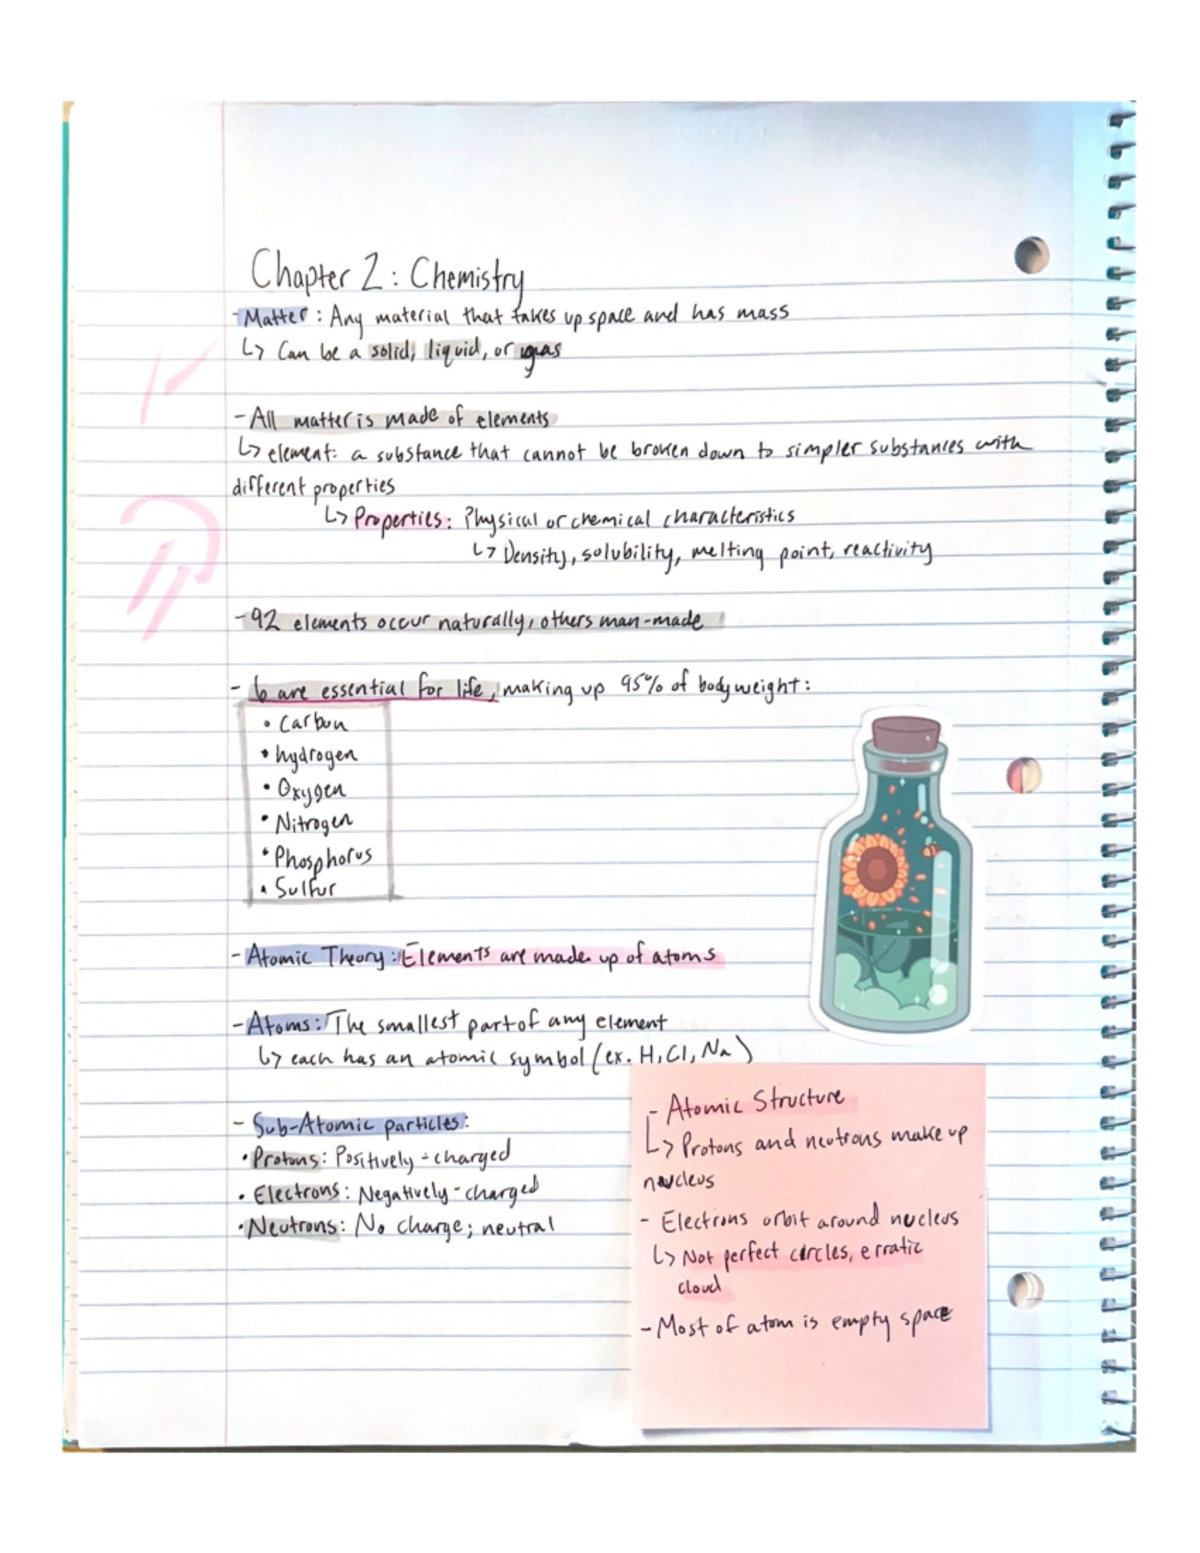 Chapter 2: Chemistry
- Matter: Any material that takes up space and has mass
↳ Can be a solid, liquid, or gas
- All matter is made of elements
↳ element: a substance that cannot be broken down to simpler substances with
different properties
↳ Properties: Physical or chemical characteristics
↳ Density, solubility, melting point, reactivity
- 92 elements occur naturally, others man-made
- 6 are essential for life, making up 95% of bodyweight:
• Carbon
• hydrogen
• Oxygen
• Nitrogen
• Phosphorus
• Sulfur
- Atomic Theory: Elements are made up of atoms
- Atoms: The smallest part of any element
↳ each has an atomic symbol (ex. H, Cl, Na)
- Sub-Atomic particles:
• Protons: Positively-charged
• Electrons: Negatively-charged
• Neutrons: No charge; neutral
- Atomic Structure
↳ Protons and neutrons make up
nucleus
- Electrons orbit around nucleus
↳ Not perfect circles, erratic
cloud
- Most of atom is empty space